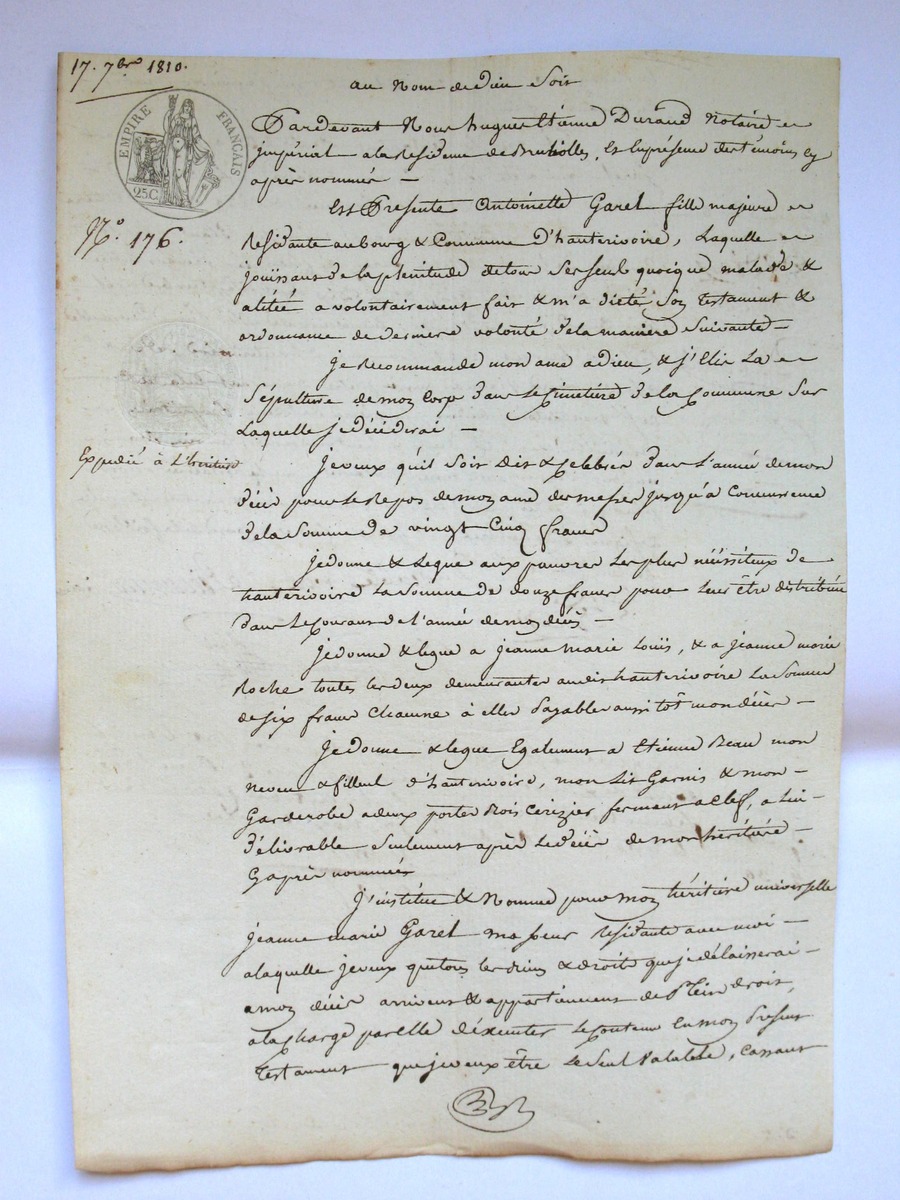 17. 7bre 1810.
au Nom de dieu Soit
EMPIRE FRANÇAIS
25C.
Pardevant Nous hugues Etienne Durand Notaire
jmpérial a la Residence de Brullioles, & En presence des témoins cy
après nommés —
N.° 176.
Est Presente Antoinette Garel fille majeure
Residante au bourg & Commune D'hauterivoire, Laquelle
joüissant de la plenitude de tous Ses sens quoique malade &
alitée a volontairement fait & m'a dictée Son testament &
ordonnance de derniere volonté de la maniere Suivante —
je Recommande mon ame a dieu, & j'Elis La
Sépulture de mon Corps dans Le Cimetiére de la Commune Sur
Laquelle je décèderai —
Expedié à L'heritiere
je veux qu'il Soit Dit & Celebrés dans L'année de mon
décès pour Le Repos de mon ame des messes jusqu'a Concurrence
de la Somme de vingt Cinq francs
je donne & Legue aux pauvres Les plus nécéssiteux de
hauterivoire La Somme de douze francs pour Leur être distribuée
Dans Le Courant de L'année de mon décès —
je donne & legue a jeanne marie Loüis, & a jeanne marie
Roche toutes les deux demeurantes audit hauterivoire La Somme
de six francs Chacune à elles Payables aussitôt mon décès —
je donne & legue Egalement a Etienne Beau mon
neveu & filleul d'hauterivoire, mon Lit Garnis & mon —
Garderobe a deux portes Bois Cerizier fermant a Clef, a Lui —
délivrable Seulement après Le décès de mon héritiére —
Cy après nommée
j'institue & Nomme pour mon héritiére universelle
jeanne marie Garel ma soeur Residante avec moi —
a laquelle je veux que tous les biens & droits que je délaisserai —
a mon décès arrivent & appartiennent de Plein droit,
a la Charge par elle d'éxécuter Le Contenu En mon Présent
testament que je veux être Le Seul Valable, Cassant